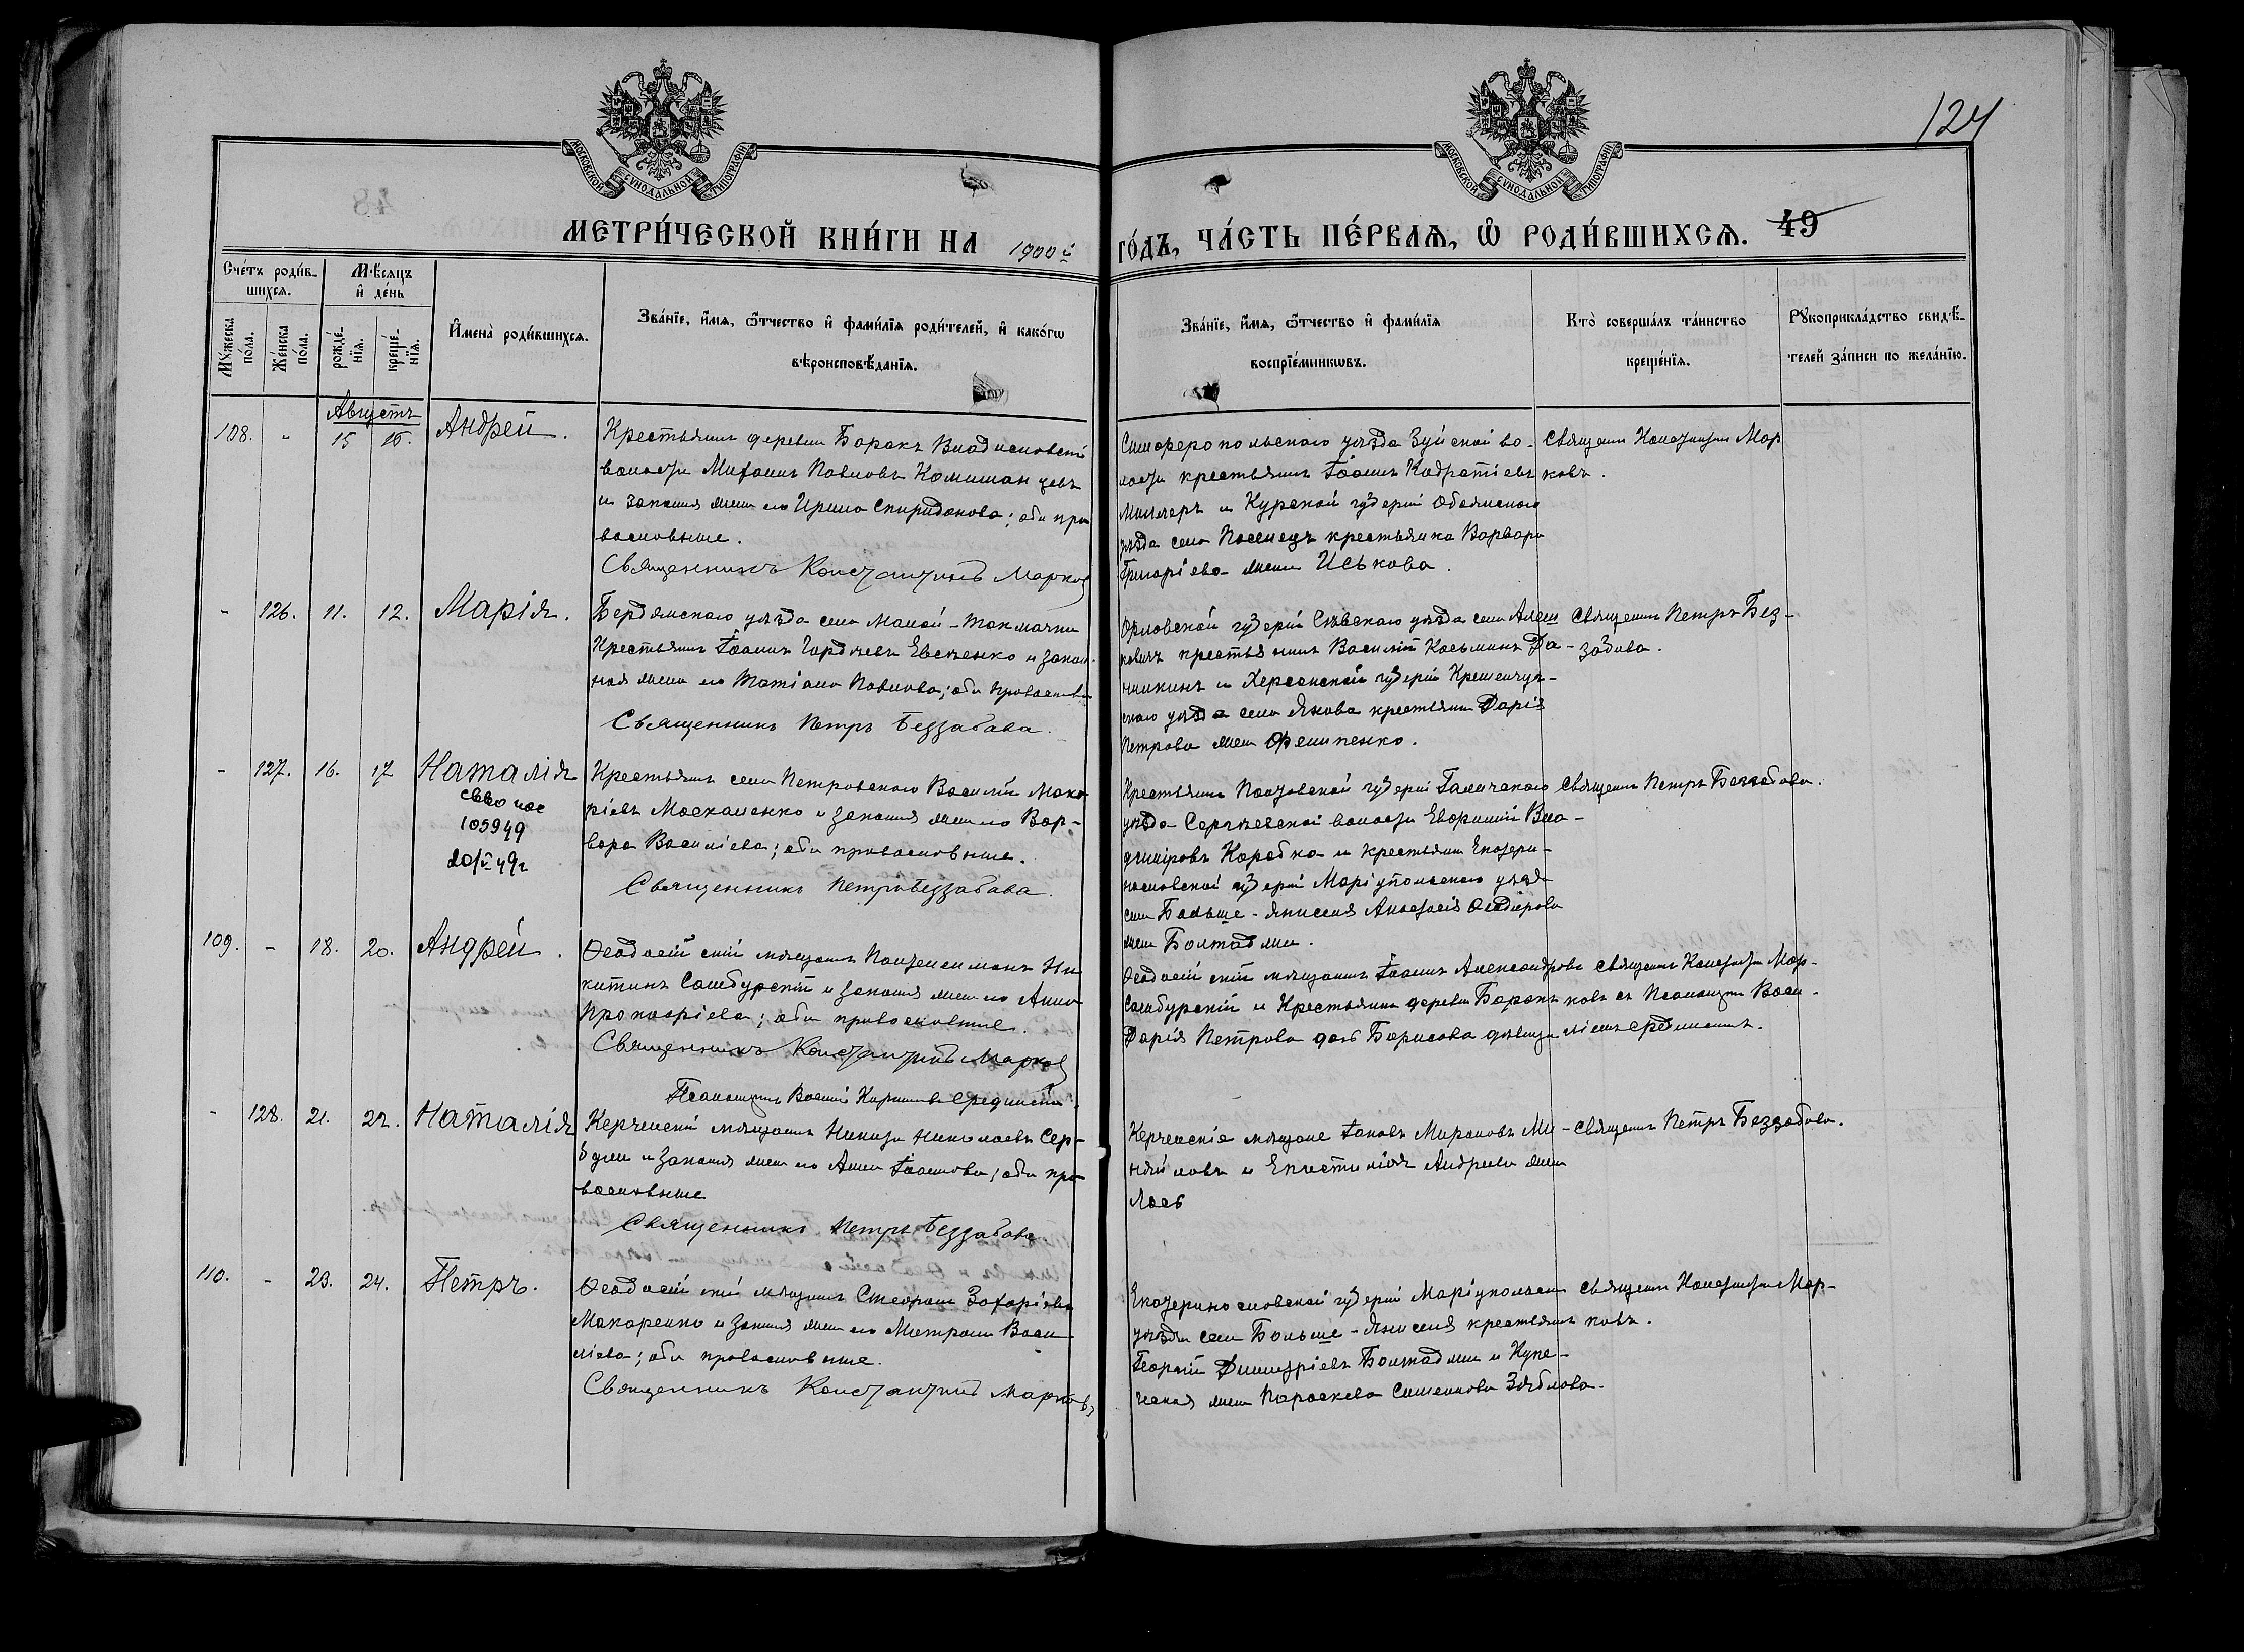 124
МОСКОВСКОЙ СѴНОДАЛЬНОЙ ТИПОГРАФІИ
МОСКОВСКОЙ СѴНОДАЛЬНОЙ ТИПОГРАФІИ
МЕТРИ́ЧЕСКОЙ КНИ́ГИ НА 1900й ГО́ДЪ, ЧА́СТЬ ПЕ́РВАѦ, Ѡ҆ РОДИ́ВШИХСѦ. 49
Сче́тъ роди́в-
шихсѧ.
Мꙋ́жеска по́ла.
Же́нска по́ла.
Мѣ́сѧцъ
и҆ де́нь
рожде́-нїѧ.
креще́-нїѧ.
И҆мена̀ роди́вшихсѧ.
Зва́нїе, и҆́мѧ, ѻ҆́тчество и҆ фами́лїѧ роди́телей, и҆ како́гѡ
вѣроисповѣ́данїѧ.
Зва́нїе, и҆́мѧ, ѻ҆́тчество и҆ фами́лїѧ
воспрїе́мникѡвъ.
Кто̀ соверша́лъ та́инство
креще́нїѧ.
Рꙋкоприкла́дство свидѣ́-
телей за́писи по жела́нїю.
Августъ
108. - 15 16. Андрей.
Крестьянинъ деревни Баракъ Владиславской
волости Михаилъ Павловъ Комишан
и законная жена его Ирина Спиридонова; оба пра
вославные.
Священникъ Константинъ Марковъ
Симферопольскаго уѣзда Зуйской во-
лости крестьянинъ Іоаннъ
Миллеръ и Курской губерніи Обоянскаго
уѣзда села крестьянка Варвара
Григоріева жена Иськова.
Священникъ Константинъ Мар
ковъ.
- 126. 11. 12. Марія.
Бердянскаго уѣзда села Малой-Токмачки
Крестьянинъ Іоаннъ Гордѣевъ Евсѣенко и закон
ная жена его Татіана Павлова; оба православные
Священникъ Петръ Беззабава.
Орловской губерніи Сѣвскаго уѣзда села
крестьянинъ Василій Косьминъ Да-
ншкинъ и Херсонской губерніи Кременчуг-
скаго уѣзда села Якова крестьянка Дарія
Петрова жена Филипенко.
Священникъ Петръ Без-
забава.
- 127. 16. 17 Наталія
свво пос
105949
20/V-49г
Крестьянинъ села Петровскаго Василій Мака-
ріевъ Москаленко и законная жена его Вар-
вара Василіева; оба православные.
Священникъ Петръ Беззабава.
Крестьянинъ Полтавской губерніи Гадячскаго
уѣзда Сергѣевской волости Евфимій Вла-
диміровъ Коробка и крестьянка Екатери-
нославской губерніи Маріупольскаго уѣзда
села Больше-Янисоля Анастасія Ѳеодорова
жена Болтаджи.
Священникъ Петръ Беззабава.
109. - 18. 20. Андрей.
Ѳеодосійскій мѣщанинъ Пантелеимонъ Ни
китинъ Самбурскій и законная жена его Анна
Прокофіева; оба православные.
Священникъ Константинъ Марковъ
Псаломщикъ Василій Срединскій.
Ѳеодосійскій мѣщанинъ Іоаннъ Александровъ
Самбурскій и Крестьянка деревни Баракъ
Дарія Петрова дочь Борисова дѣвица
Священникъ Константинъ Мар-
ковъ съ Псаломщикомъ Васи-
ліемъ Срединскимъ.
- 128. 21. 22. Наталія
Керченскій мѣщанинъ Никита Николаевъ Сер-
и законная жена его Анна Іоаннова; оба пра
вославные
Священникъ Петръ Беззабава.
Керченскіе мѣщане Іаковъ Мироновъ Ми-
хайловъ и Епистимія Андреева жена
Лаев
Священникъ Петръ Беззабава.
110. - 23. 24. Петръ.
Ѳеодосійскій мѣщанинъ Стефанъ Захаріевъ
Макаренко и законная жена его Матрона Васи
ліева; оба православные.
Священникъ Константинъ Марковъ
Екатеринославской губерніи Маріупольскаго
уѣзда села Больше-Янисоля крестьянинъ
Георгій Димитріевъ Болтаджи и Купе-
ческая жена Параскева Симеонова Зяблова.
Священникъ Константинъ Мар-
ковъ.